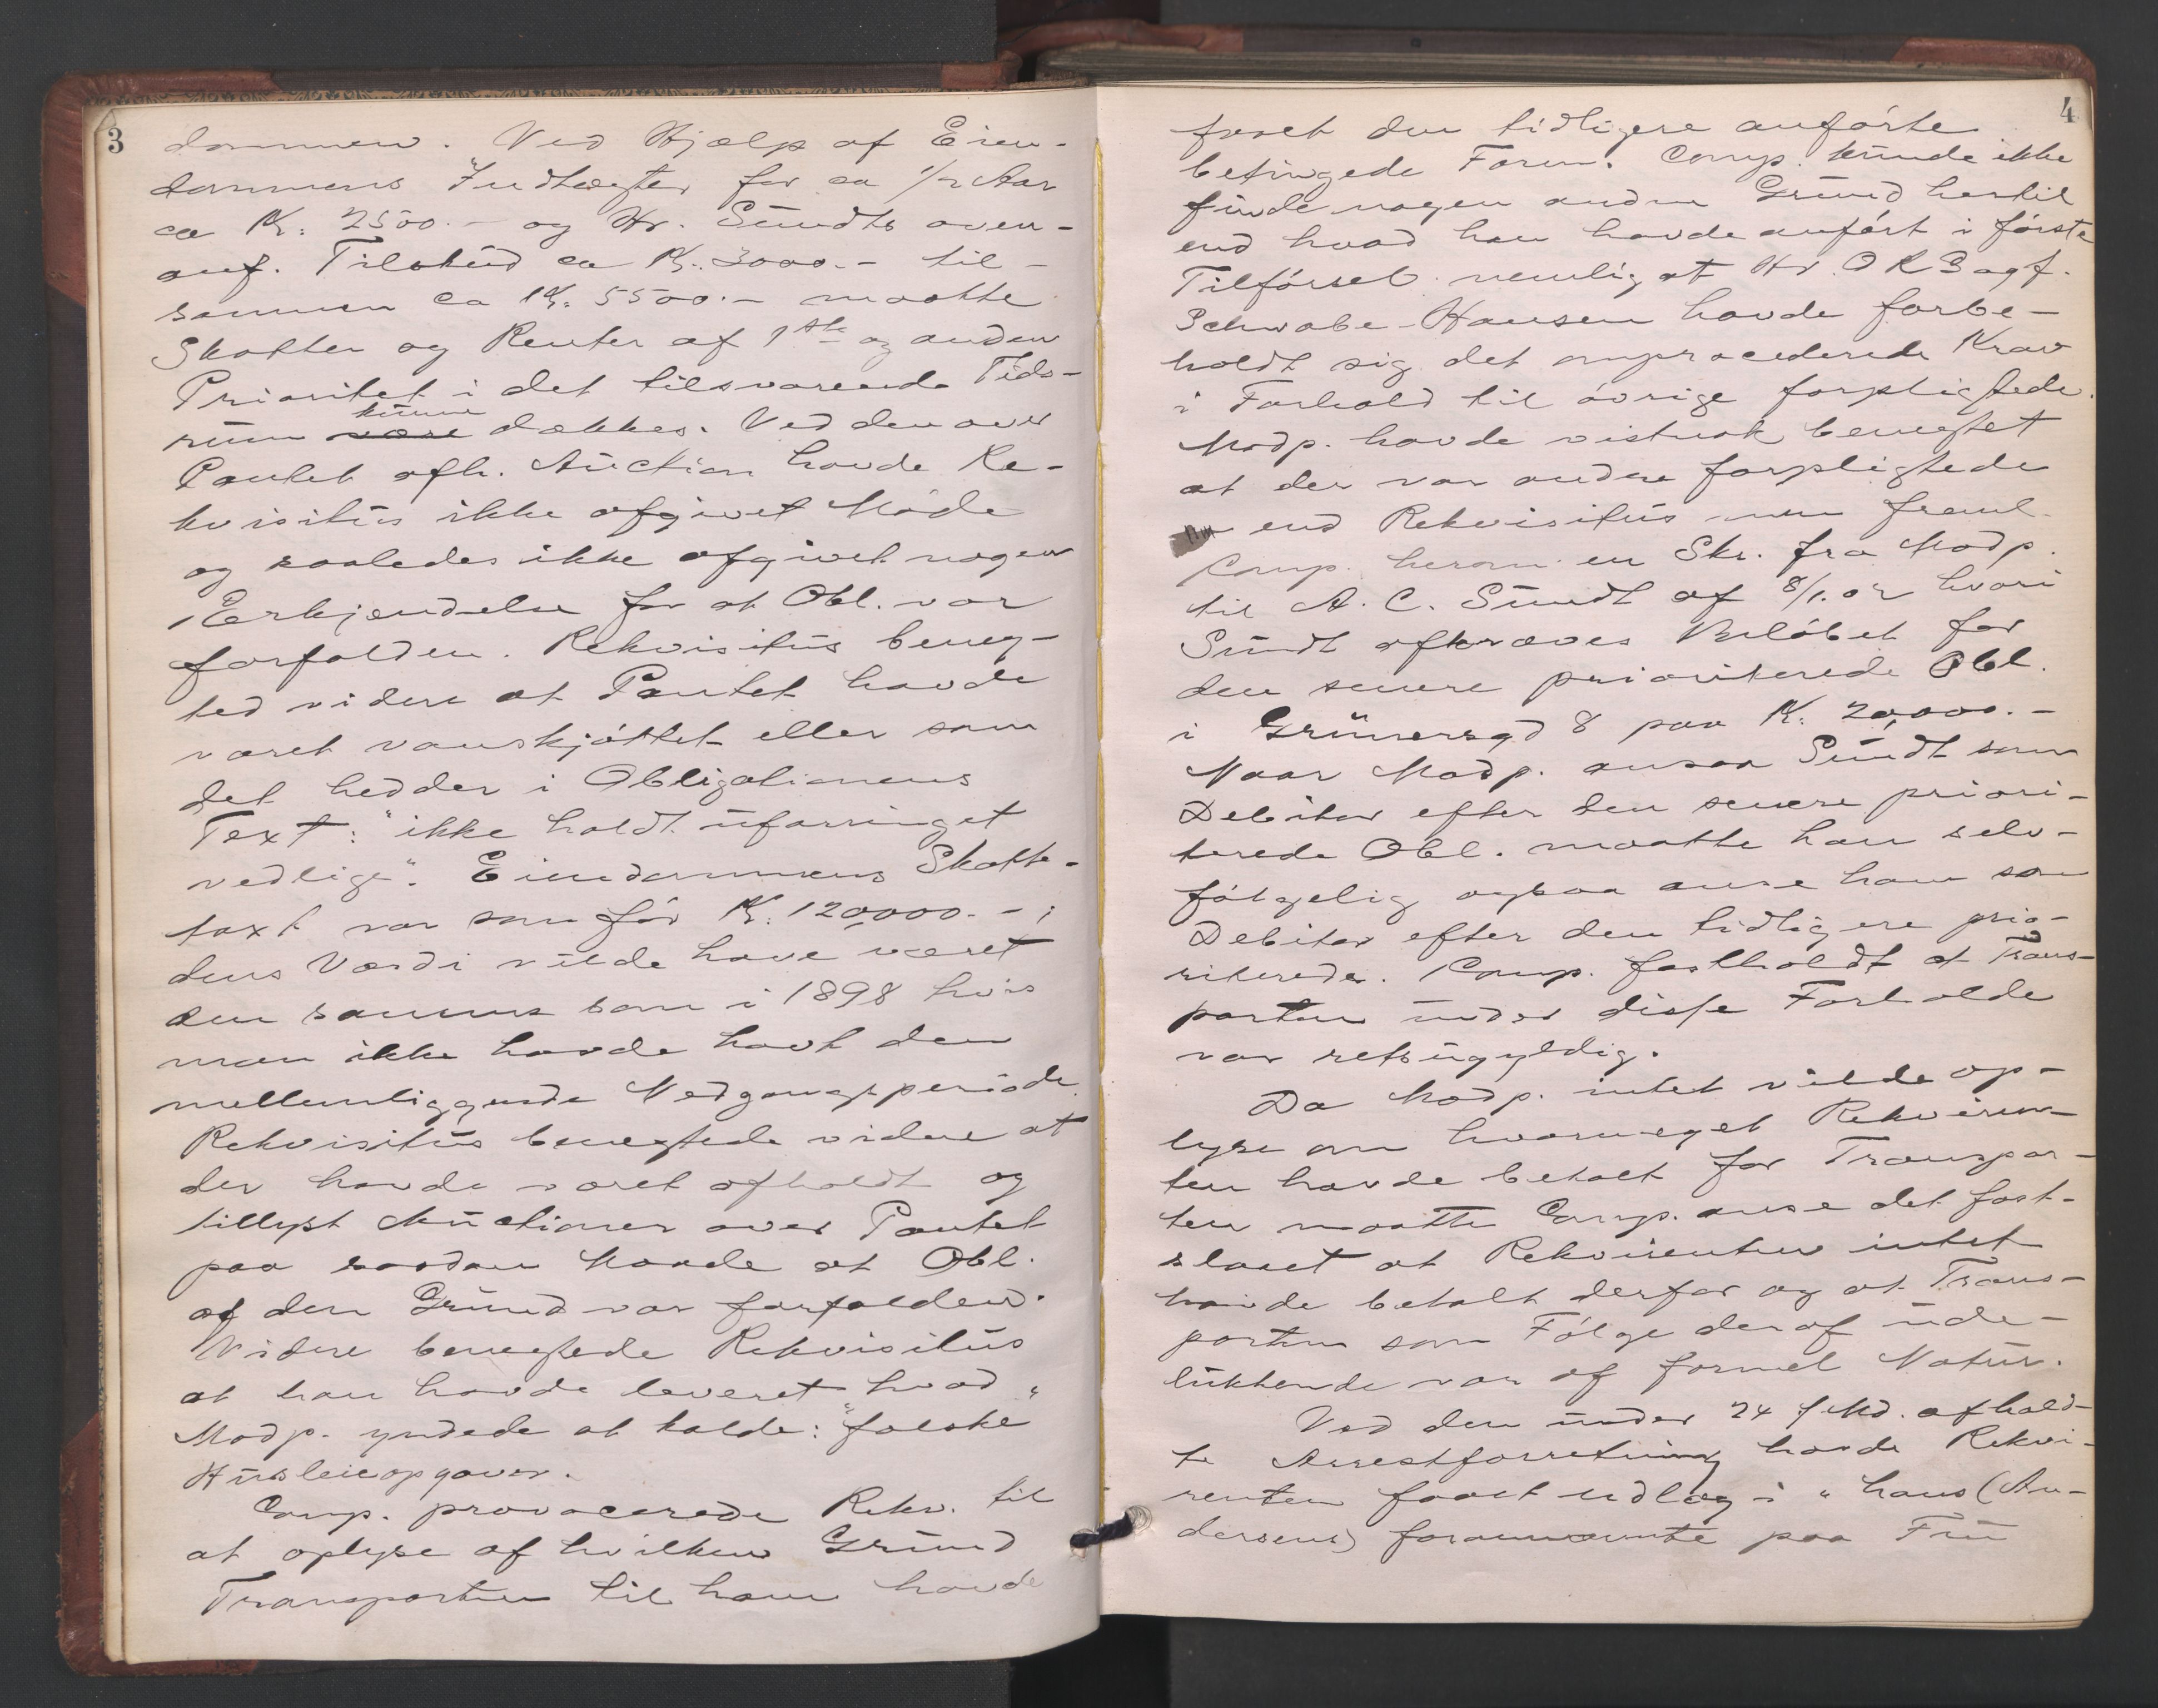 3
dommen. Ved Hjælp af Eien-
dommens Indtægter for ca 1/2 Aar
ca Kr. 2500.- og Hr. Sundts oven-
anf. Tilskud ca Kr. 3000.- til-
sammen ca Kr. 5500.- maatte
Skatter og Renter af 1ste og anden
Prioritet i det tilsvarende Tids-
kunne
rum være dækkes. Ved den over
Pantet afh. Auction havde Re-
kvisitus ikke afgivet Møde
og saaledes ikke afgivet nogen
Erkjendelse for at Obl. var
forfalden. Rekvisitus beneg-
ted videre at Pantet havde
været vanskjøttet eller som
det hedder i Obligationens
Text: "ikke holdt uforringet
vedlige". Eiendommens Skatte-
taxt var som før Kr. 120,000.-;
dens Værdi vilde have været
den samme som i 1898 hvis
man ikke havde havt den
mellemliggende Nedgangsperiode.
Rekvisitus benegtede videre at
der havde været afholdt og
tillyst Auctioner over Pantet
paa saadan Maade at Obl.
af den Grund var forfalden.
Videre benegtede Rekvisitus
at han havde leveret hvad
Modp. yndede at kalde: "falske"
Husleieopgaver.
Comp. provocerede Rekv. til
at oplyse af hvilken Grund
Transporten til ham havde
4
faaet den tidligere anførte
betingede Form. Comp. kunde ikke
finde nogen anden Grund hertil
end hvad han havde anført i første
Tilførsel nemlig at Hr. O R Sagf.
Schwabe-Hansen havde forbe-
holdt sig det omprocederede Krav
i Forhold til øvrige forpligtede.
Modp. havde vistnok benegtet
at der var andre forpligtede
end Rekvisitus men freml.
Comp. herom en Skr. fra Modp.
til A. C. Sundt af 8/1.02 hvori
Sundt afkræves Beløbet for
den senere prioriterede Obl.
i Grünersgd 8 paa Kr. 20,000.-
Naar Modp. ansaa Sundt som
Debitor efter den senere priori-
terede Obl. maatte han selv-
følgelig ogsaa anse ham som
Debitor efter den tidligere prio-
riterede. Comp. fastholdt at Trans-
porten under disse Forholde
var retsugyldig.
Da Modp. intet vilde op-
lyse om hvormeget Rekviren-
ten havde betalt for Transpor-
ten maatte Comp. anse det fast-
slaaet at Rekvirenten intet
havde betalt derfor og at Trans-
porten som Følge deraf ude-
lukkende var af formel Natur.
Ved den under 24 f Md. afhold-
te Arrestforretning havde Rekvi-
renten faaet udlæg i "hans (An-
dersens) forannævnte paa Fru